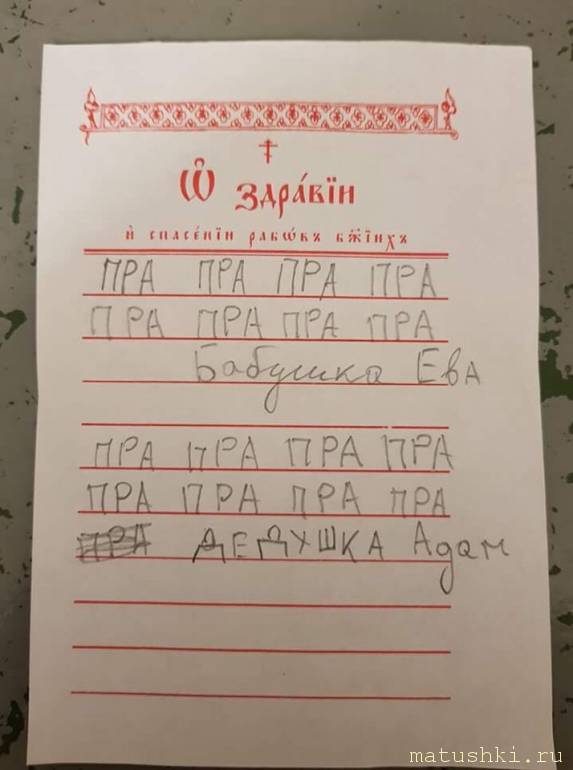 Ѡ҆ здра́вїи
и҆ спасе́нїи рабѡ́въ бж҃їихъ
ПРА ПРА ПРА ПРА
ПРА ПРА ПРА ПРА
Бабушка ЕвА
ПРА ПРА ПРА ПРА
ПРА ПРА ПРА ПРА
ПРА ДЕДУШКА Адам
matushki.ru